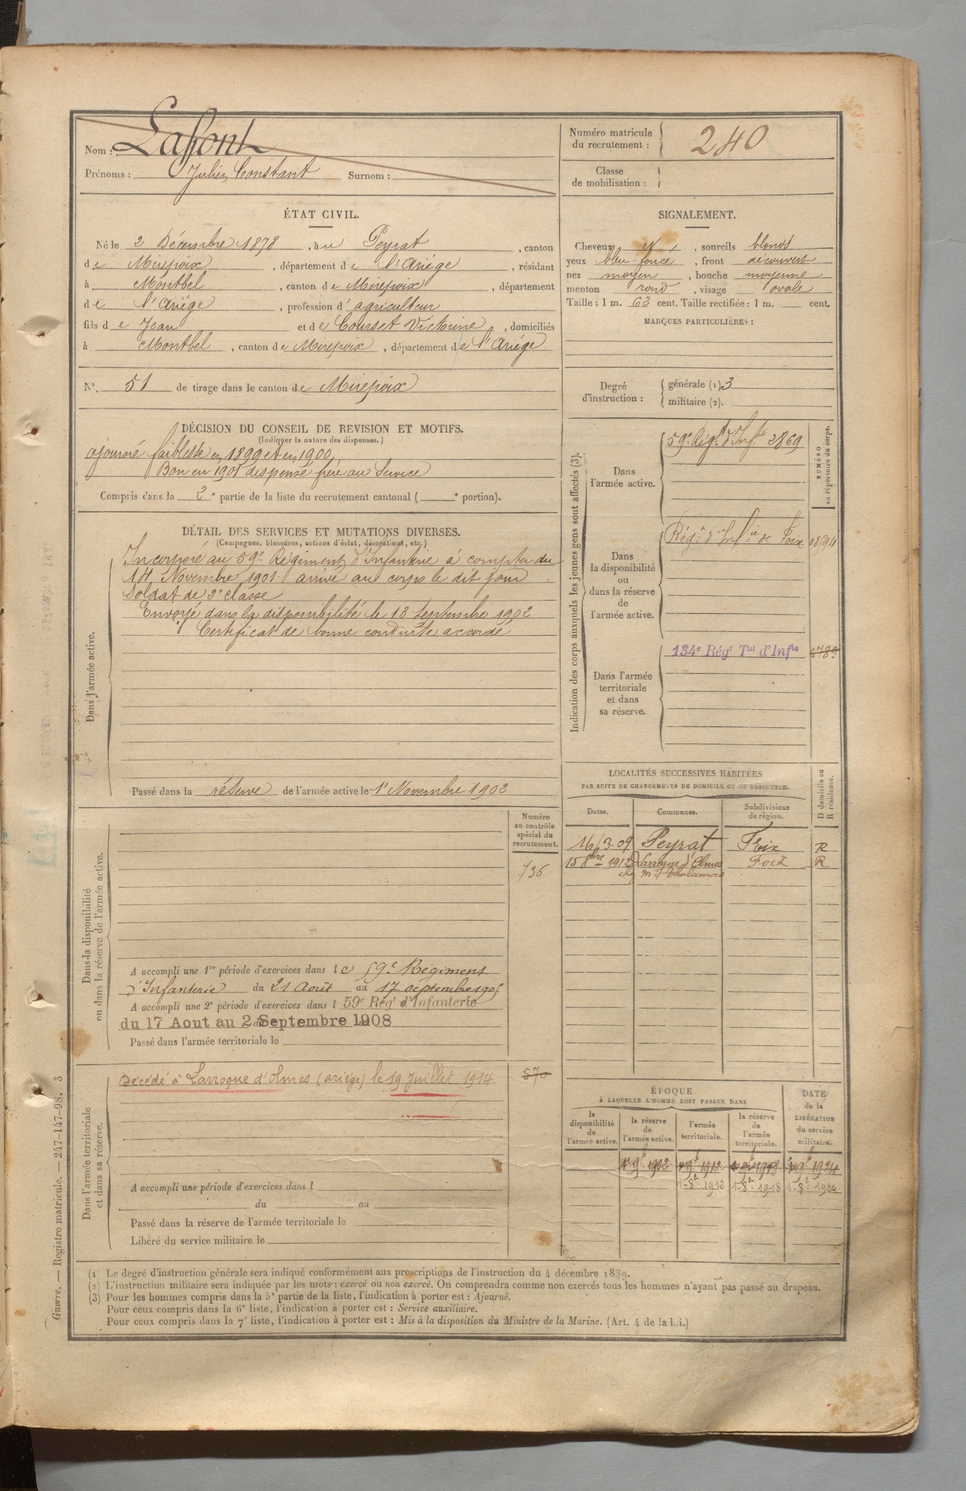 Nom : Laffont
Prénoms : Julien Constant Surnom :
Numéro matricule du recrutement : 240
Classe de mobilisation :
ÉTAT CIVIL.
Né le 2 Décembre 1878, à u Peyrat, canton
de Mirepoix, département de l'Ariège, résidant
à Montbel, canton de Mirepoix, département
de l'Ariège, profession d'agriculteur
fils de Jean et de Courset Victorine, domiciliés
à Montbel, canton de Mirepoix, département de l'Ariège
N°. 51 de tirage dans le canton de Mirepoix
SIGNALEMENT.
Cheveux et sourcils blonds
yeux bleu foncé, front découvert
nez moyen, bouche moyenne
menton rond, visage ovale
Taille : 1 m. 63 cent. Taille rectifiée : 1 m. cent.
MARQUES PARTICULIÈRES :
Degré d'instruction : générale (1). 3
militaire (2).
DÉCISION DU CONSEIL DE REVISION ET MOTIFS.
(Indiquer la nature des dispenses.)
ajourné faiblesse en 1899 et en 1900
Bon en 1901 dispensé frère au Service
Compris dans la 2e partie de la liste du recrutement cantonal ( e portion).
DÉTAIL DES SERVICES ET MUTATIONS DIVERSES.
(Campagnes, blessures, actions d'éclat, décorations, etc.)
Dans l'armée active.
Incorporé au 59e Régiment d'Infanterie à compter du
14 Novembre 1901 arrivé au corps le dit jour
Soldat de 2e classe
Envoyé dans la disponibilité le 13 Septembre 1902
Certificat de bonne conduite accordé
Passé dans la réserve de l'armée active le 1er Novembre 1902
Indication des corps auxquels les jeunes gens sont affectés (3).
NUMÉRO au répertoire du corps.
Dans l'armée active.
59e Régt d'Infie 2869
Dans la disponibilité ou dans la réserve de l'armée active.
Régt d'Infie de Foix
Dans l'armée territoriale et dans sa réserve.
134e Régt Tal d'Infie
LOCALITÉS SUCCESSIVES HABITÉES
PAR SUITE DE CHANGEMENTS DE DOMICILE OU DE RÉSIDENCE.
Dates. Communes. Subdivisions de région. D domicile ou R résidence.
16/3-09 Peyrat Foix R
15 8bre 1912 Larroque d'Olmes Foix R
Dans la disponibilité ou dans la réserve de l'armée active.
Numéro au contrôle spécial du recrutement.
736
A accompli une 1re période d'exercices dans le 59e Régiment
d'Infanterie du 21 Août au 17 septembre 1905
A accompli une 2e période d'exercices dans l 59e Rég d'Infanterie
du 17 Aout au 2 Septembre 1908
Passé dans l'armée territoriale le
Dans l'armée territoriale et dans sa réserve.
Décédé à Larroque d'Olmes (ariège) le 19 Juillet 1914
570
A accompli une période d'exercices dans l
du au
Passé dans la réserve de l'armée territoriale le
Libéré du service militaire le
ÉPOQUE
À LAQUELLE L'HOMME DOIT PASSER DANS
la disponibilité de l'armée active.
la réserve de l'armée active.
l'armée territoriale.
la réserve de l'armée territoriale.
DATE de la LIBÉRATION du service militaire.
1er 9bre 1902
1-8e 1912 1-8e 1918
(1 Le degré d'instruction générale sera indiqué conformément aux prescriptions de l'instruction du 4 décembre 1889.
(2) L'instruction militaire sera indiquée par les mots : exercé ou non exercé. On comprendra comme non exercés tous les hommes n'ayant pas passé au drapeau.
(3) Pour les hommes compris dans la 5e partie de la liste, l'indication à porter est : Ajourné.
Pour ceux compris dans la 6e liste, l'indication à porter est : Service auxiliaire.
Pour ceux compris dans la 7e liste, l'indication à porter est : Mis à la disposition du Ministre de la Marine. (Art. 4 de la loi.)
Guerre. — Registre matricule. — 247-147-98. 3